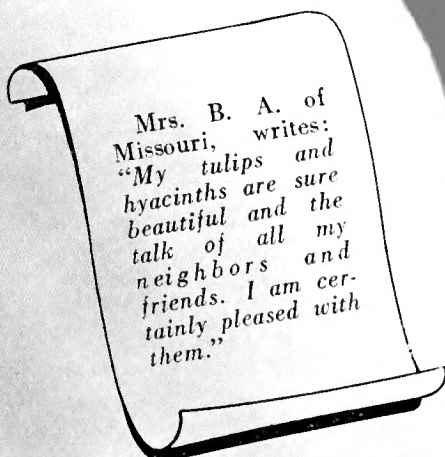 Mrs. B. A. of
Missouri, writes:
"My tulips and
hyacinths are sure
beautiful and the
talk of all my
neighbors and
friends. I am cer-
tainly pleased with
them."